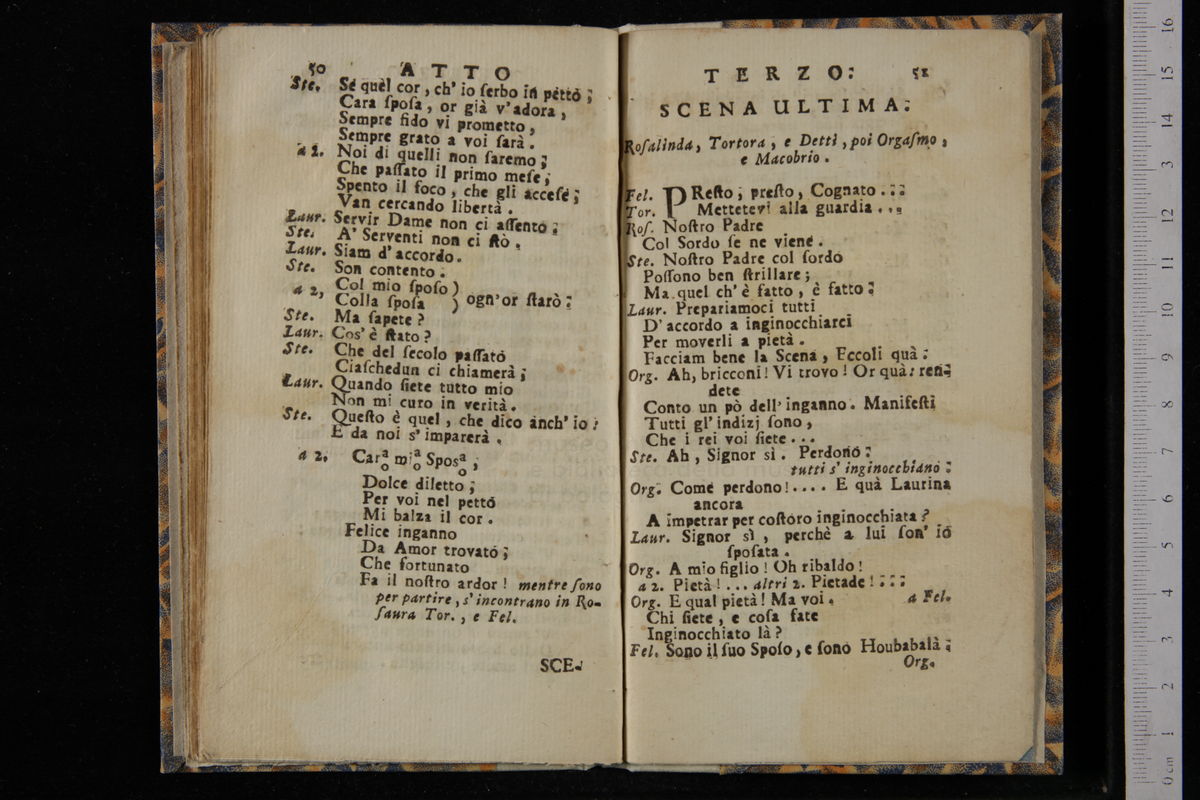 50 ATTO
Ste. Se quel cor, ch' io ſerbo in petto;
Cara ſpoſa, or già v'adora,
Sempre fido vi prometto,
Sempre grato a voi ſarà.
a 2. Noi di quelli non ſaremo;
Che paſſato il primo meſe,
Spento il foco, che gli acceſe;
Van cercando libertà.
Laur. Servir Dame non ci aſſento;
Ste. A' Serventi non ci ſtò.
Laur. Siam d'accordo.
Ste. Son contento.
a 2, Col mio ſpoſo )
Colla ſpoſa ) ogn'or ſtarò:
Ste. Ma ſapete?
Laur. Cos'è ſtato?
Ste. Che del ſecolo paſſato
Ciaſchedun ci chiamerà;
Laur. Quando ſiete tutto mio
Non mi curo in verità.
Ste. Queſto è quel, che dico anch' io:
E da noi s'imparerà.
a 2. Car a/o mi a/o Spos a/o;
Dolce diletto;
Per voi nel petto
Mi balza il cor.
Felice inganno
Da Amor trovato;
Che fortunato
Fa il noſtro ardor! mentre ſono
per partire, s'incontrano in Ro-
ſaura Tor., e Fel.
SCE-
TERZO: 51
SCENA ULTIMA:
Roſalinda, Tortora, e Detti, poi Orgaſmo,
e Macobrio.
Fel. PReſto, preſto, Cognato...
Tor. Mettetevi alla guardia...
Roſ. Noſtro Padre
Col Sordo ſe ne viene.
Ste. Noſtro Padre col ſordo
Poſſono ben ſtrillare;
Ma quel ch'è fatto, è fatto:
Laur. Prepariamoci tutti
D'accordo a inginocchiarci
Per moverli a pietà.
Facciam bene la Scena, Eccoli quà:
Org. Ah, bricconi! Vi trovo! Or quà: ren-
dete
Conto un pò dell'inganno. Manifeſti
Tutti gl'indizj ſono,
Che i rei voi ſiete...
Ste. Ah, Signor sì. Perdono:
tutti s'inginocchiano:
Org. Come perdono!.... E quà Laurina
ancora
A impetrar per coſtoro inginocchiata?
Laur. Signor sì, perchè a lui ſon' io
ſpoſata.
Org. A mio figlio! Oh ribaldo!
a 2. Pietà!... altri 2. Pietade!...
Org. E qual pietà! Ma voi. a Fel.
Chi ſiete, e coſa fate
Inginocchiato là?
Fel. Sono il ſuo Spoſo, e ſono Houbabalà:
Org.